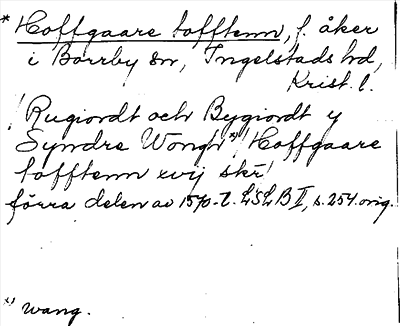 * Hoffgaare tofftenn, f. åker
i Borrby sn, Ingelstads hd,
Krist. l.
! Rugiordt och Bygiordt y
Syndre Wongh *) Hoffgaare
tofftenn xvij skr !
förra delen av 1570-t. LSLB II, s. 254. orig.
*) wang.